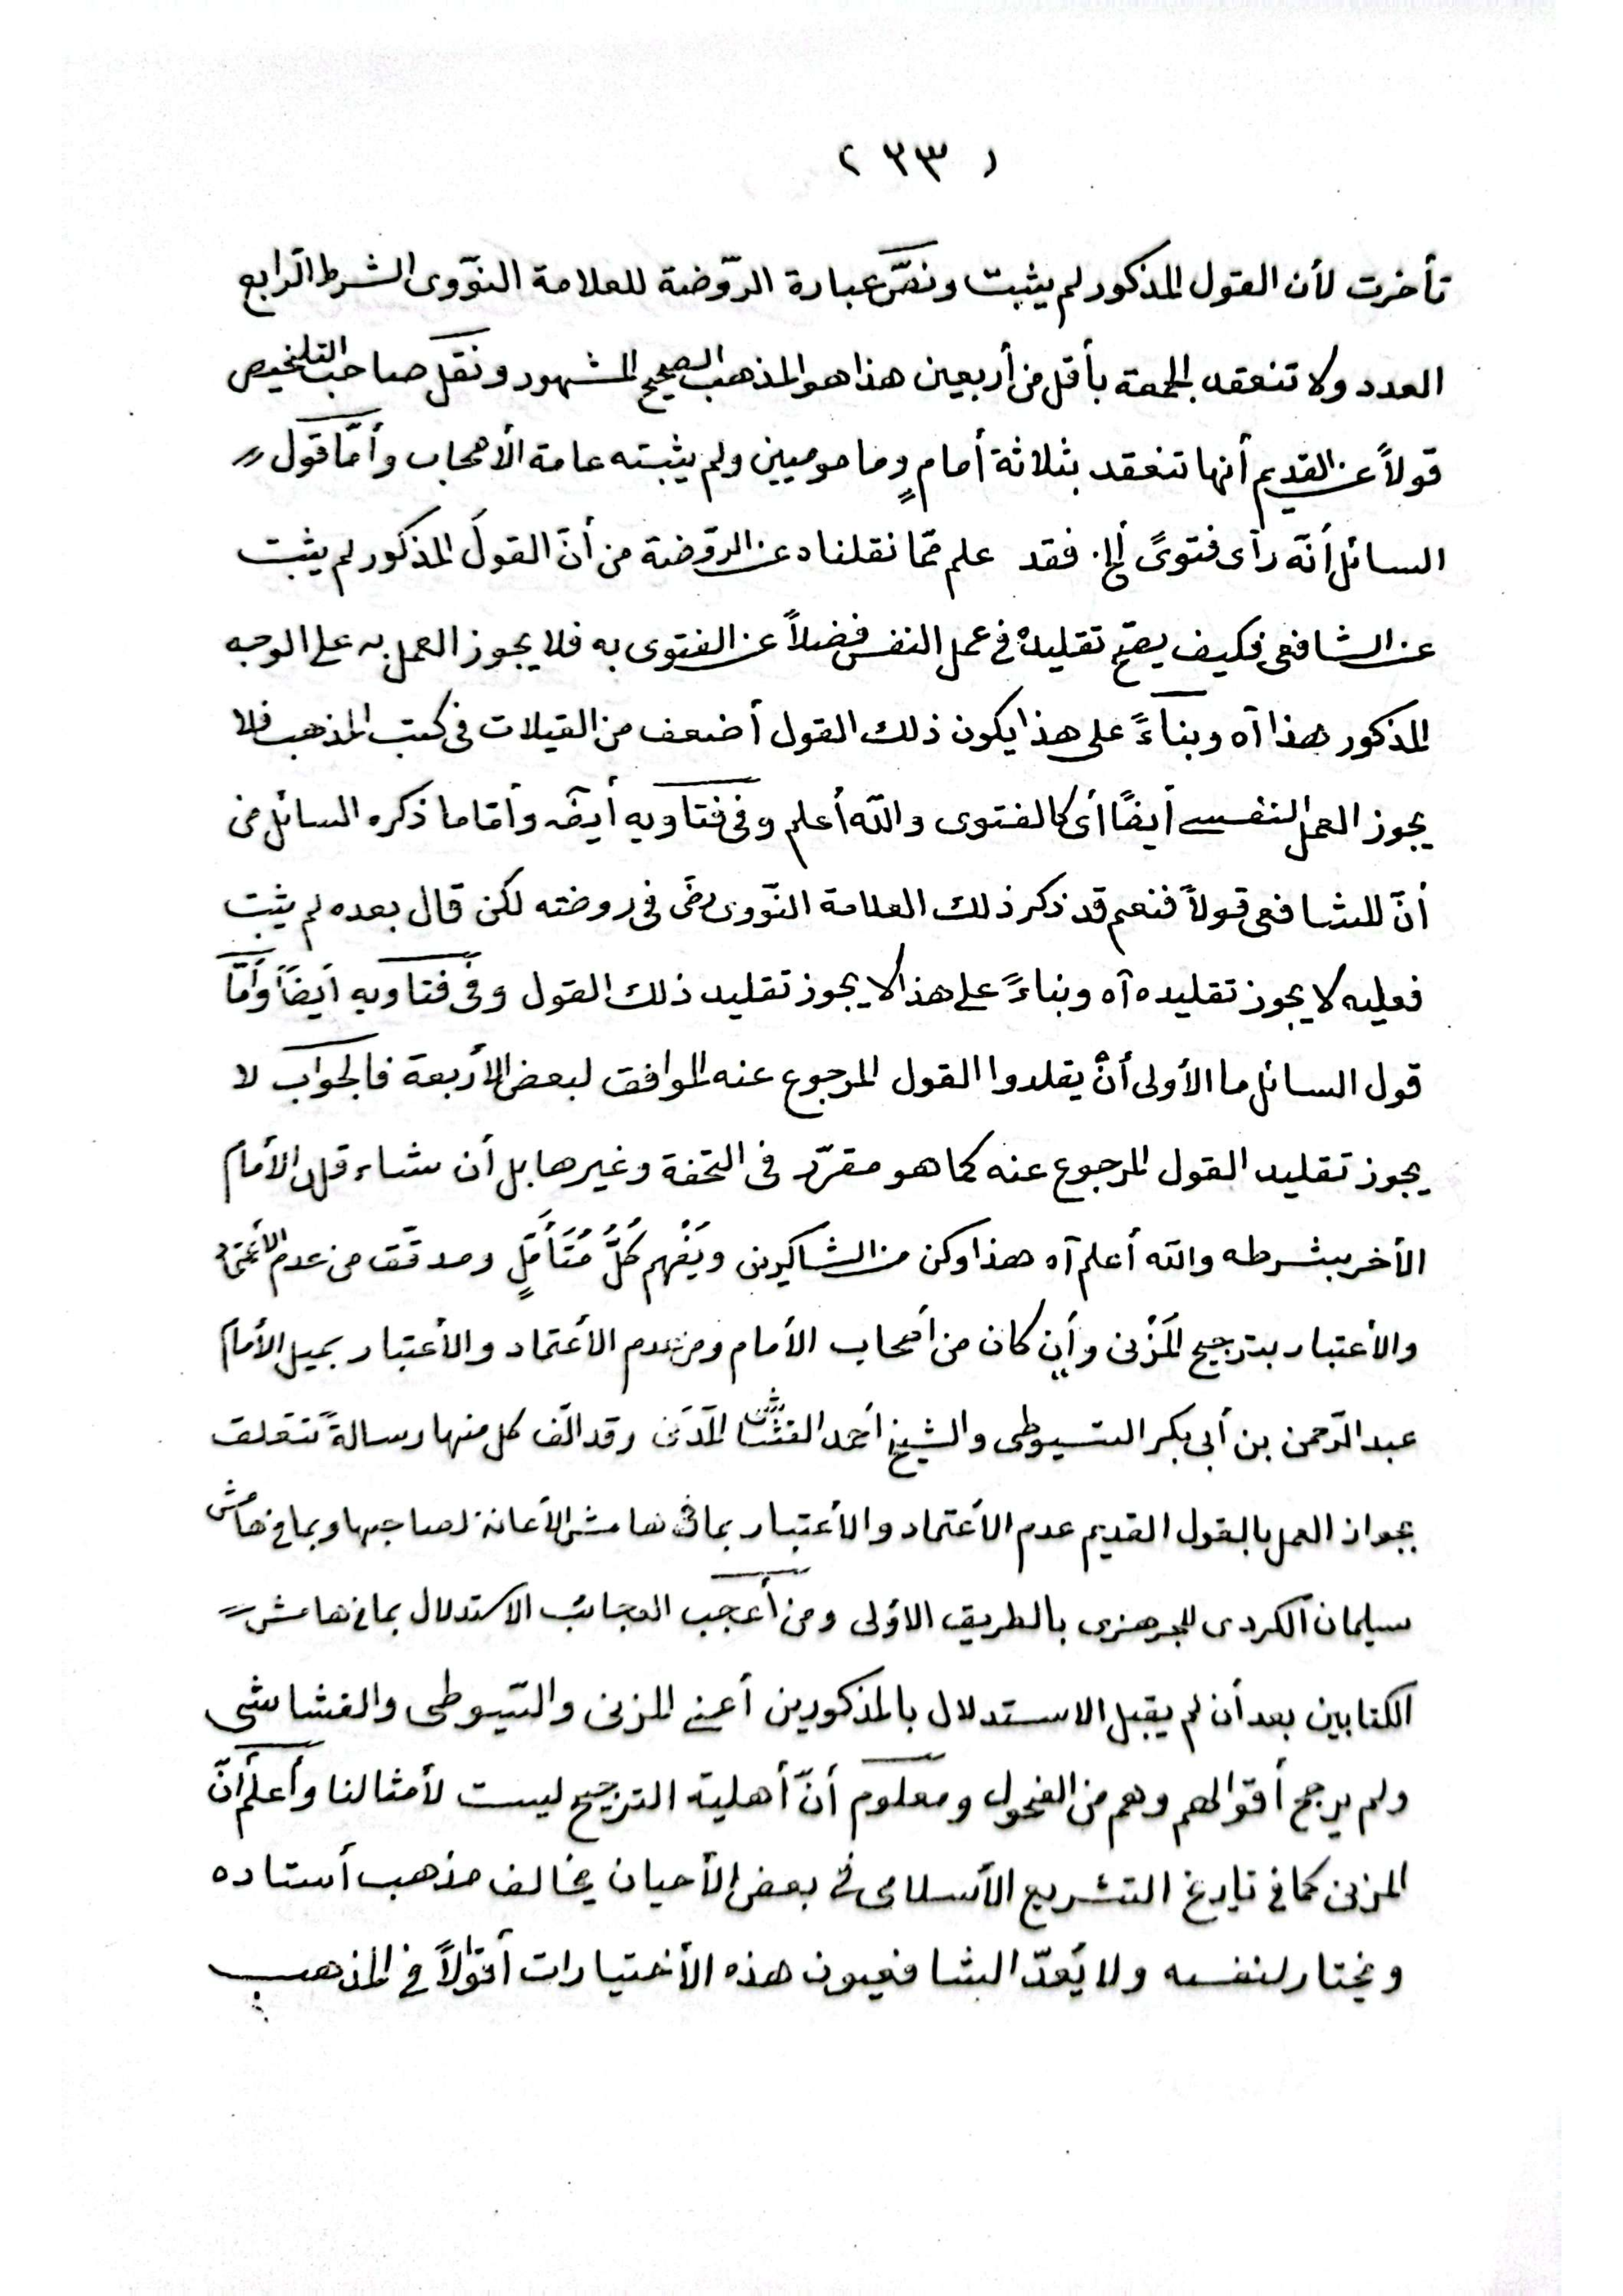 ( ٢٣ )
تأخرت لأن القول المذكور لم يثبت ونصّ عبارة الرّوضة للعلامة النوّوى الشرط الرّابع
العدد ولا تنعقد الجمعة بأقل من أربعين هذا هو المذهب الصحيح المشهور ونقل صاحب التلخيص
قولاً عن القديم أنها تنعقد بثلاثة أمامٍ ومامومين ولم يثبته عامة الأصحاب وأمّا قول
السائل أنّه رآى فتوىً ألخ. فقد علم ممّا نقلناه عن الروّضة من أنّ القولَ المذكور لم يثبت
عن الشافعى فكيف يصحّ تقليدهُ فى عمل النفس فضلاً عن الفتوى به فلا يجوز العمل به على الوجه
المذكور هذا آه وبناءً على هذا يكون ذلك القول أضعف من القيلات فى كتب المذهب فلا
يجوز العمل لنفسه أيضًا أى كالفتوى والله أعلم وفى فتاويه أيضًا وأمّا ما ذكره السائل من
أنّ للشافعى قولاً فنعم قد ذكر ذلك العلامة النوّوى رضى فى روضته لكن قال بعده لم يثبت
فعليه لا يجوز تقليده آه وبناءً على هذا لا يجوز تقليد ذلك القول وفى فتاويه أيضًا وأمّا
قول السائل ما الأولى أنْ يقلدوا القول المرجوع عنه الموافق لبعض الأربعة فالجواب لا
يجوز تقليد القول المرجوع عنه كما هو مقرّر فى التحفة وغيرها بل أن شاء قلد الأمام
الأخر بشرطه والله أعلم آه هذا وكن من الشاكرين ويَفْهم كُلُّ مُتَأَمِّلٍ ومدقّق من عدم الأعتماد
والأعتبار بترجيح المُزَنى وأِن كان من أصحاب الأمام ومن عدم الأعتماد والأعتبار بميل الأمام
عبد الرّحمن بن أبى بكر السّيوطى والشيخ أحمد القشاشى المَدَنى وقد الّف كل منها رسالةً تتعلق
بجواز العمل بالقول القديم عدم الأعتماد والأعتبار بما فى هامش الأعانة لصاحبها وبما فى هامش
سليمان الكردى للجرهزى بالطريق الاوُلى ومن أعجب العجائب الاستدلال بما فى هامش
الكتابين بعد أن لم يقبل الاستدلال بالمذكورين أعنى المزنى والسّيوطى والقشاشى
ولم يرجح أقوالهم وهم من الفحول ومعلوم أنّ أهلية الترجيح ليست لأمثالنا وأعلَم أنّ
المزنى كما فى تاريخ التشريع الأسلامى فى بعض الأحيان يخالف مذهب أستاده
ويختار لنفسه ولا يَعُدّ الشافعيون هذه الأختيارات أقوالاً فى المذهب